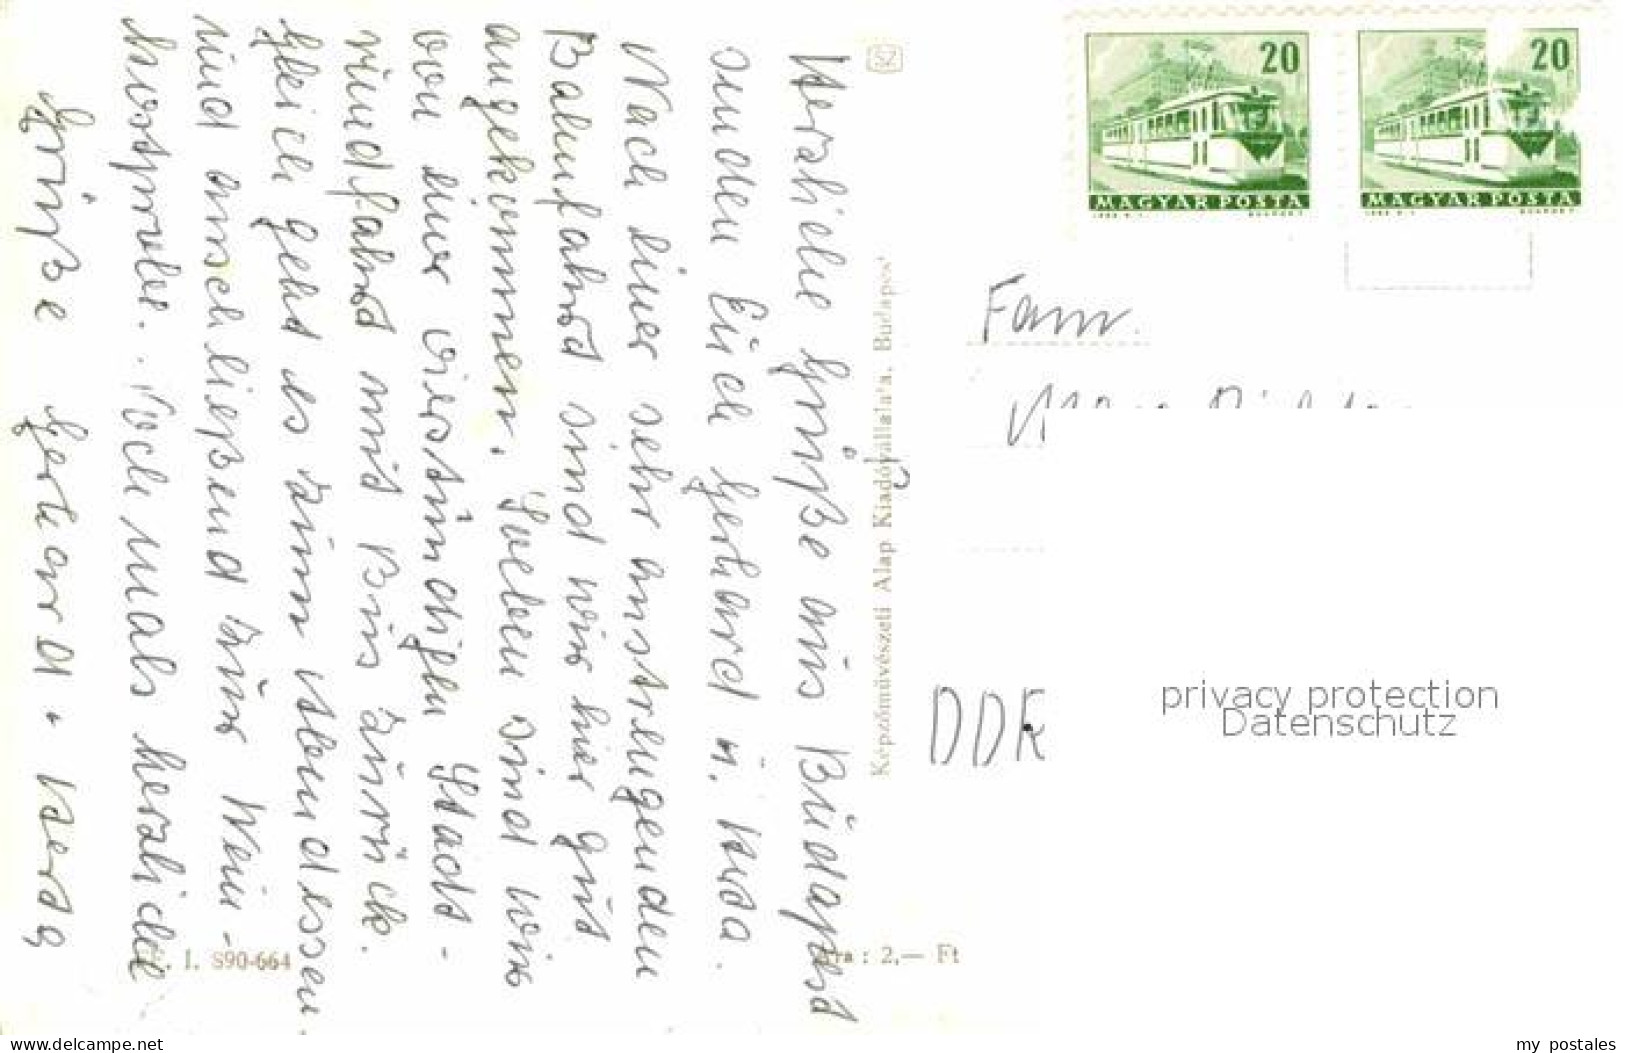 Herzliche Grüße aus Budapest
senden Euch Gerhard u. Herda.
Nach einer sehr anstrengenden
Bahnfahrt sind wir hier gut
angekommen. Soeben sind wir
von einer vierstündigen Stadt-
rundfahrt mit Bus zurück.
Gleich geht es zum Abendessen
und anschließend zur Wein-
kostprobe. Nochmals herzliche
Grüße Gerhard + Herda
I. S90-664
Ára: 2,— Ft
SZ
Képzőművészeti Alap Kiadóvállalata, Budapest
20
MAGYAR POSTA
20
MAGYAR POSTA
Fam.
DDR
privacy protection
Datenschutz
www.delcampe.net
my_postales